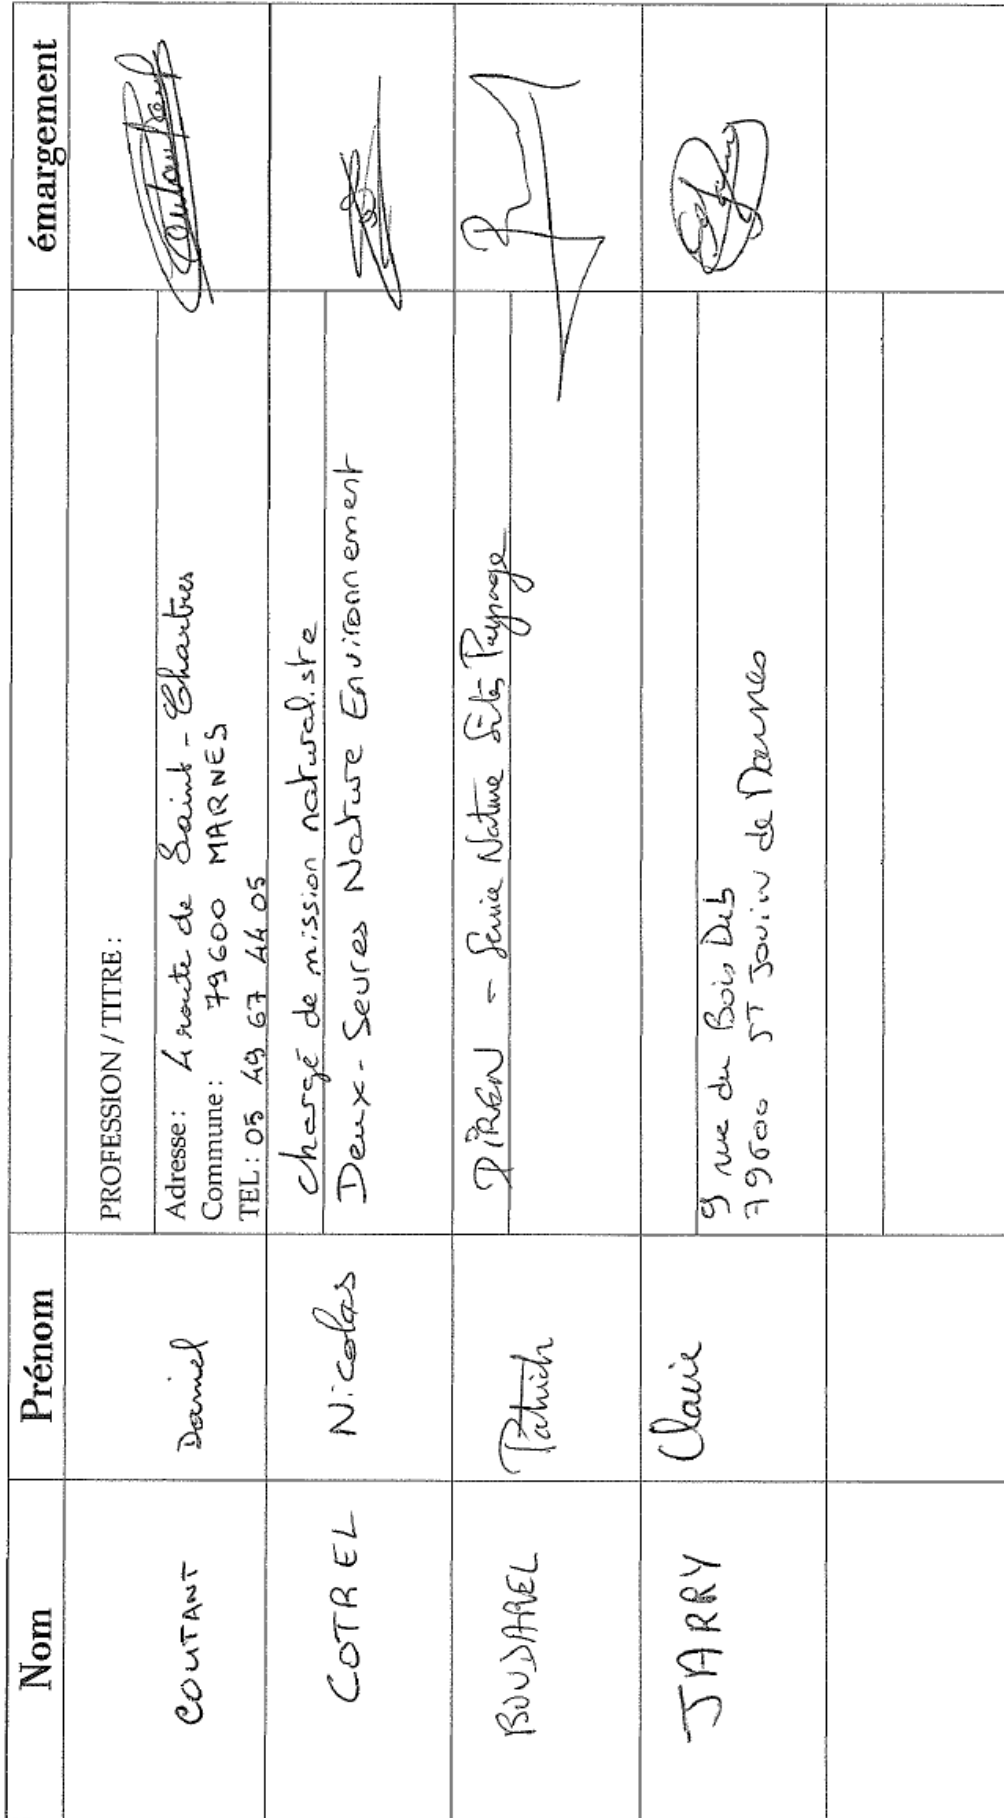 Nom Prénom émargement
PROFESSION / TITRE :
COUTANT Daniel
Adresse : 4 route de Saint-Chartres
Commune : 79600 MARNES
TEL : 05 49 67 44 05
COTREL Nicolas chargé de mission naturaliste
Deux-Sèvres Nature Environnement
BOUDAREL Patrick DIREN - Service Nature Sites Paysage
JARRY Claire
9 rue du Bois
79600 ST Jouin de Marnes